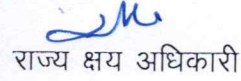 राज्य क्षय अधिकारी